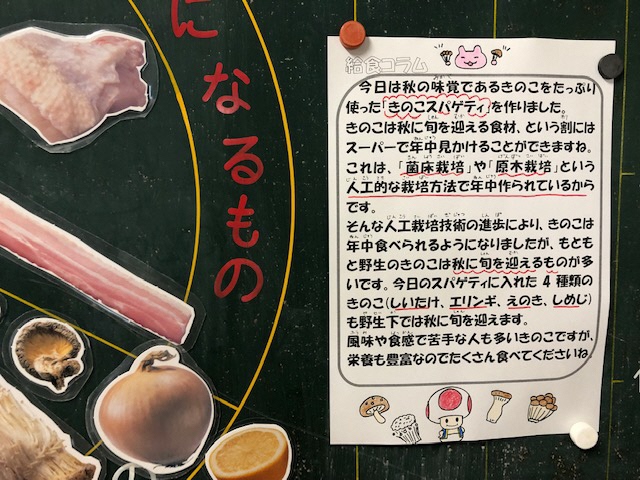 になるもの
給食コラム
今日は秋の味覚であるきのこをたっぷり
使った「きのこスパゲティ」を作りました。
きのこは秋に旬を迎える食材、という割には
スーパーで年中見かけることができますね。
これは、「菌床栽培」や「原木栽培」という
人工的な栽培方法で年中作られているから
です。
そんな人工栽培技術の進歩により、きのこは
年中食べられるようになりましたが、もとも
と野生のきのこは秋に旬を迎えるものが多
いです。今日のスパゲティに入れた4種類の
きのこ(しいたけ、エリンギ、えのき、しめじ)
も野生下では秋に旬を迎えます。
風味や食感で苦手な人も多いきのこですが、
栄養も豊富なのでたくさん食べてくださいね。